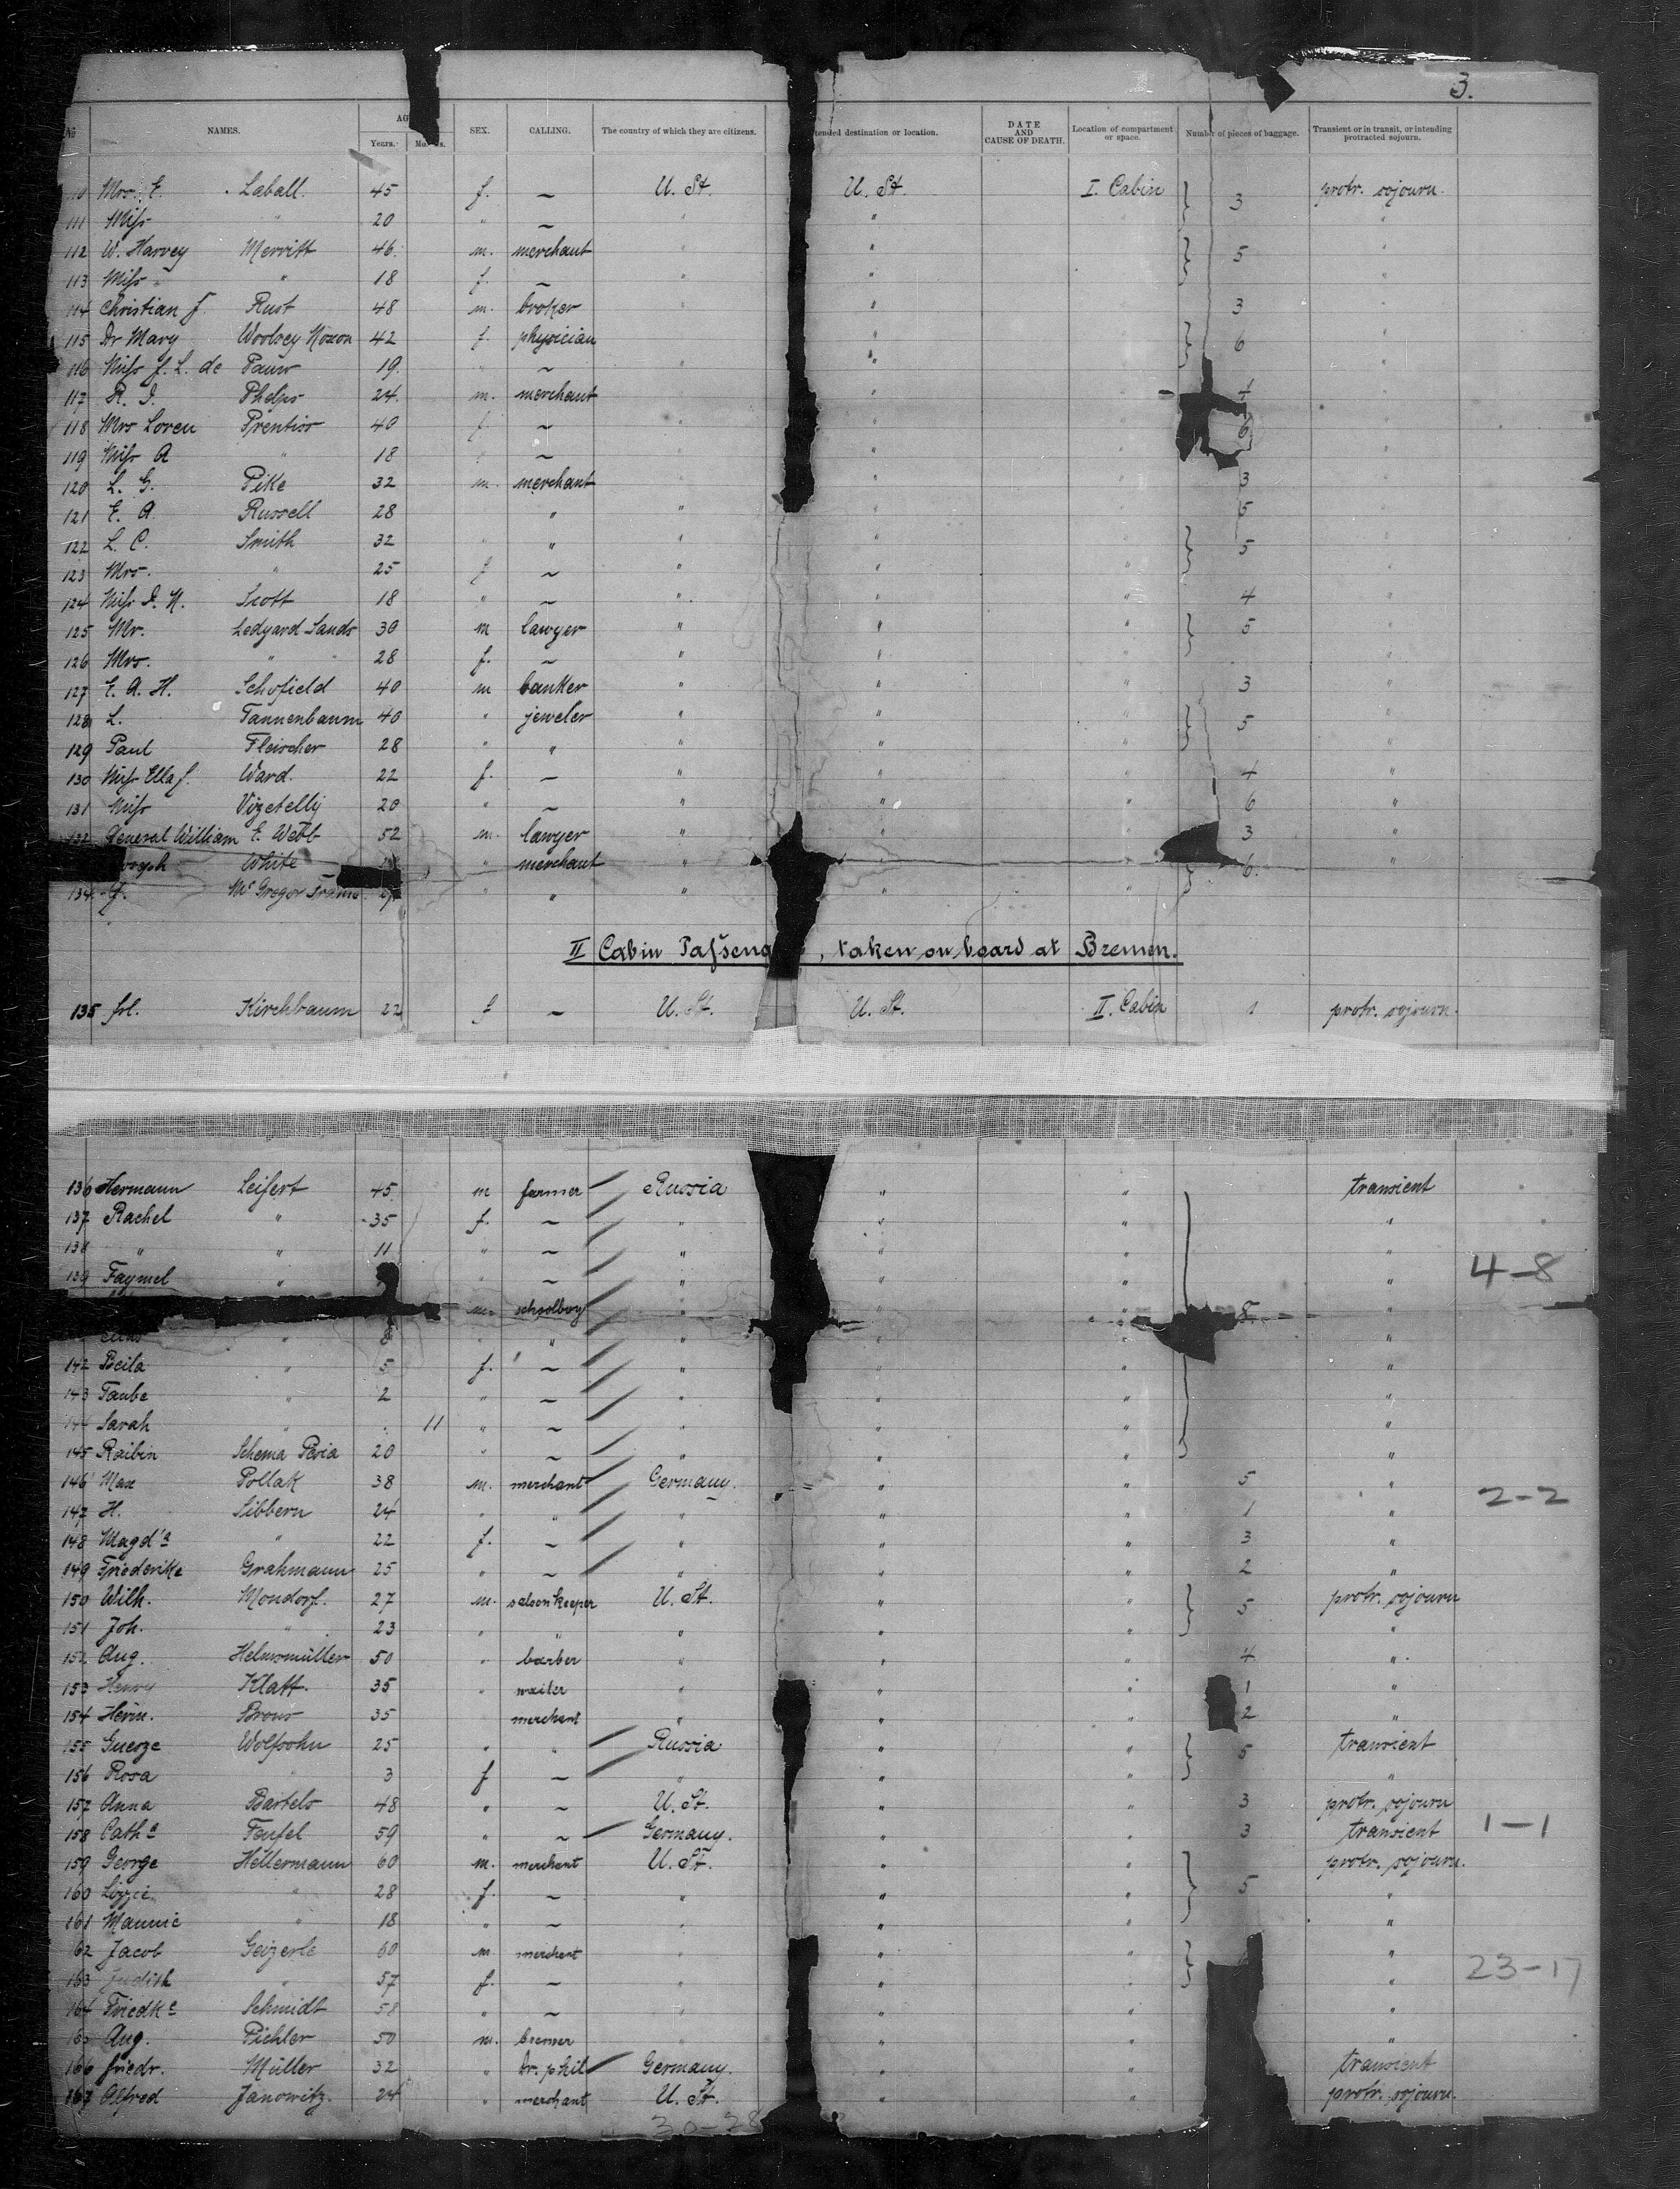 3.
No NAMES. AG SEX. CALLING. The country of which they are citizens. tended destination or location. DATE AND CAUSE OF DEATH. Location of compartment or space. Number of pieces of baggage. Transient or in transit, or intending protracted sojourn.
Years. Mo s.
110 Mrs. E. Laball. 45 f. ~ U. St. U. St. I. Cabin 3 protr. sojourn.
111 Miss " 20 " ~ " " "
112 W. Harvey Merritt 46. m. merchant " " 5 "
113 Miss " 18 f. ~ " " "
114 Christian J. Rust 48 m. broker " " 3 "
115 Dr Mary Woolsey Noxon 42 f. physician " 6 "
116 Miss J. L. de Pauw 19. ~ " " "
117 R. D. Phelps 24. m. merchant " 4
118 Mrs Loren Prentiss 40 f. ~ " 6 "
119 Miss A " 18 " ~ " "
120 L. G. Pike 32 m. merchant " " 3
121 E. A. Russell 28 " " " 5 "
122 L. C. Smith 32 " " " " 5 "
123 Mrs. " 25 f ~ " "
124 Miss D. N. Scott 18 " ~ " " " 4 "
125 Mr. Ledyard Sands 30 m lawyer " " " 5 "
126 Mrs. " 28 f. ~ " " " "
127 E. A. H. Schofield 40 m banker " " " 3 "
128 L. Tannenbaum 40 " jeweler " " " 5 "
129 Paul Fleischer 28 " " " " " "
130 Miss Ella J. Ward. 22 f. ~ " " " 4 "
131 Miss Vizetelly 20 " ~ " " " 6 "
132 General William E. Webb 52 m. lawyer " " " 3 "
White " merchant " " " 6. "
134 J. Mc Gregor " " " " "
II Cabin Passeng , taken on board at Bremen.
135 frl. Kirchbaum 22 f ~ U. St. U. St. II. Cabin 1 protr. sojourn.
136 Hermann Leifert 45 m farmer Russia " " transient
137 Rachel " 35 f. ~ " " " "
138 " " 11 " ~ " " " "
139 Faymel " " ~ " " " " 4-8
m. schoolboy " " 8 "
" 8 " " " " "
142 Beila " 5 f. ~ " " " "
143 Taube " 2 " ~ " " " "
144 Sarah " 11 " ~ " " " "
145 Raibin Schema Pesia 20 " ~ " " " "
146 Max Pollak 38 m. merchant Germany. " " 5 "
147 H. Sibbern 24 " " " " " 1 " 2-2
148 Magd'a " 22 f. ~ " " " 3 "
149 Friederike Grahmann 25 " ~ " " " 2 "
150 Wilh. Mondorf. 27 m. saloonkeeper U. St. " " 5 protr. sojourn
151 Joh. " 23 " " " " " "
152 Aug. Helmsmüller 50 " barber " " " 4 "
153 Henry Klatt. 35 " waiter " " " 1 "
154 Herm. Brous 35 merchant " " " 2 "
155 Guerze Wolfsohn 25 " " Russia " " 5 transient
156 Rosa " 3 f ~ " " " "
157 Anna Bartels 48 " ~ U. St. " " 3 protr. sojourn
158 Cath a Teufel 59 " ~ Germany. " " 3 transient 1-1
159 George Hellermann 60 m. merchant U. St. " " protr. sojourn.
160 Lizzie " 28 f. ~ " " " 5 "
161 Mamie " 18 " ~ " " " "
162 Jacob Geizerle 60 m merchant " " " "
163 Judith " 57 f. ~ " " " " 23-17
164 Friedke Schmidt 58 " ~ " " " "
165 Aug. Pichler 50 m. " " " "
166 Friedr. Müller 32 " Dr. phil Germany. " " transient
167 Alfred Janowitz. 24 " merchant U. St. " " protr. sojourn.
30-28